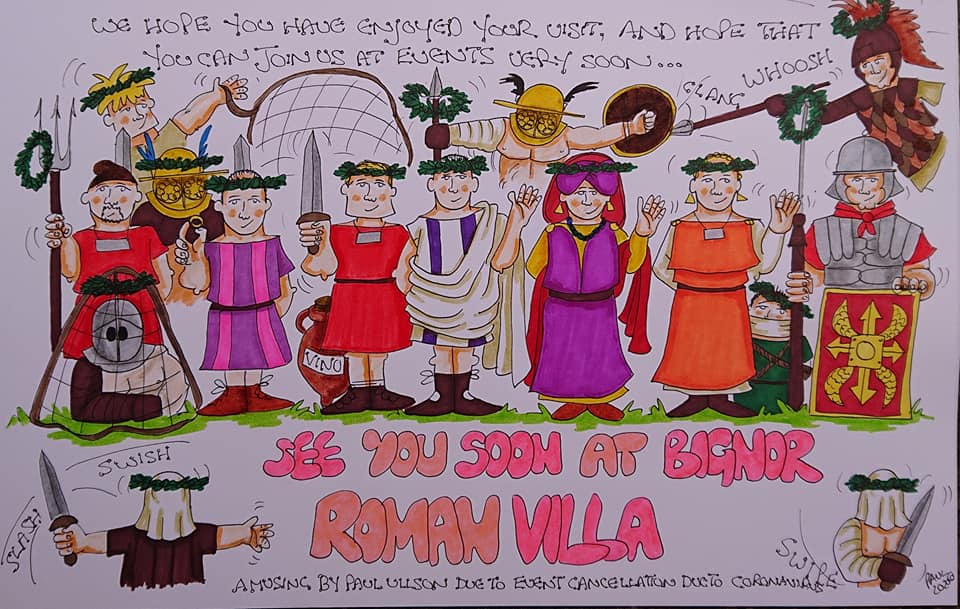 WE HOPE YOU HAVE ENJOYED YOUR VISIT, AND HOPE THAT
YOU CAN JOIN US AT EVENTS VERY SOON...
CLANG
WHOOSH
VINO
SEE YOU SOON AT BIGNOR
ROMAN VILLA
SWISH
SLASH
SWIPE
A MUSING BY PAUL ULLSON DUE TO EVENT CANCELLATION DUE TO CORONAVIRUS
PAUL
2020